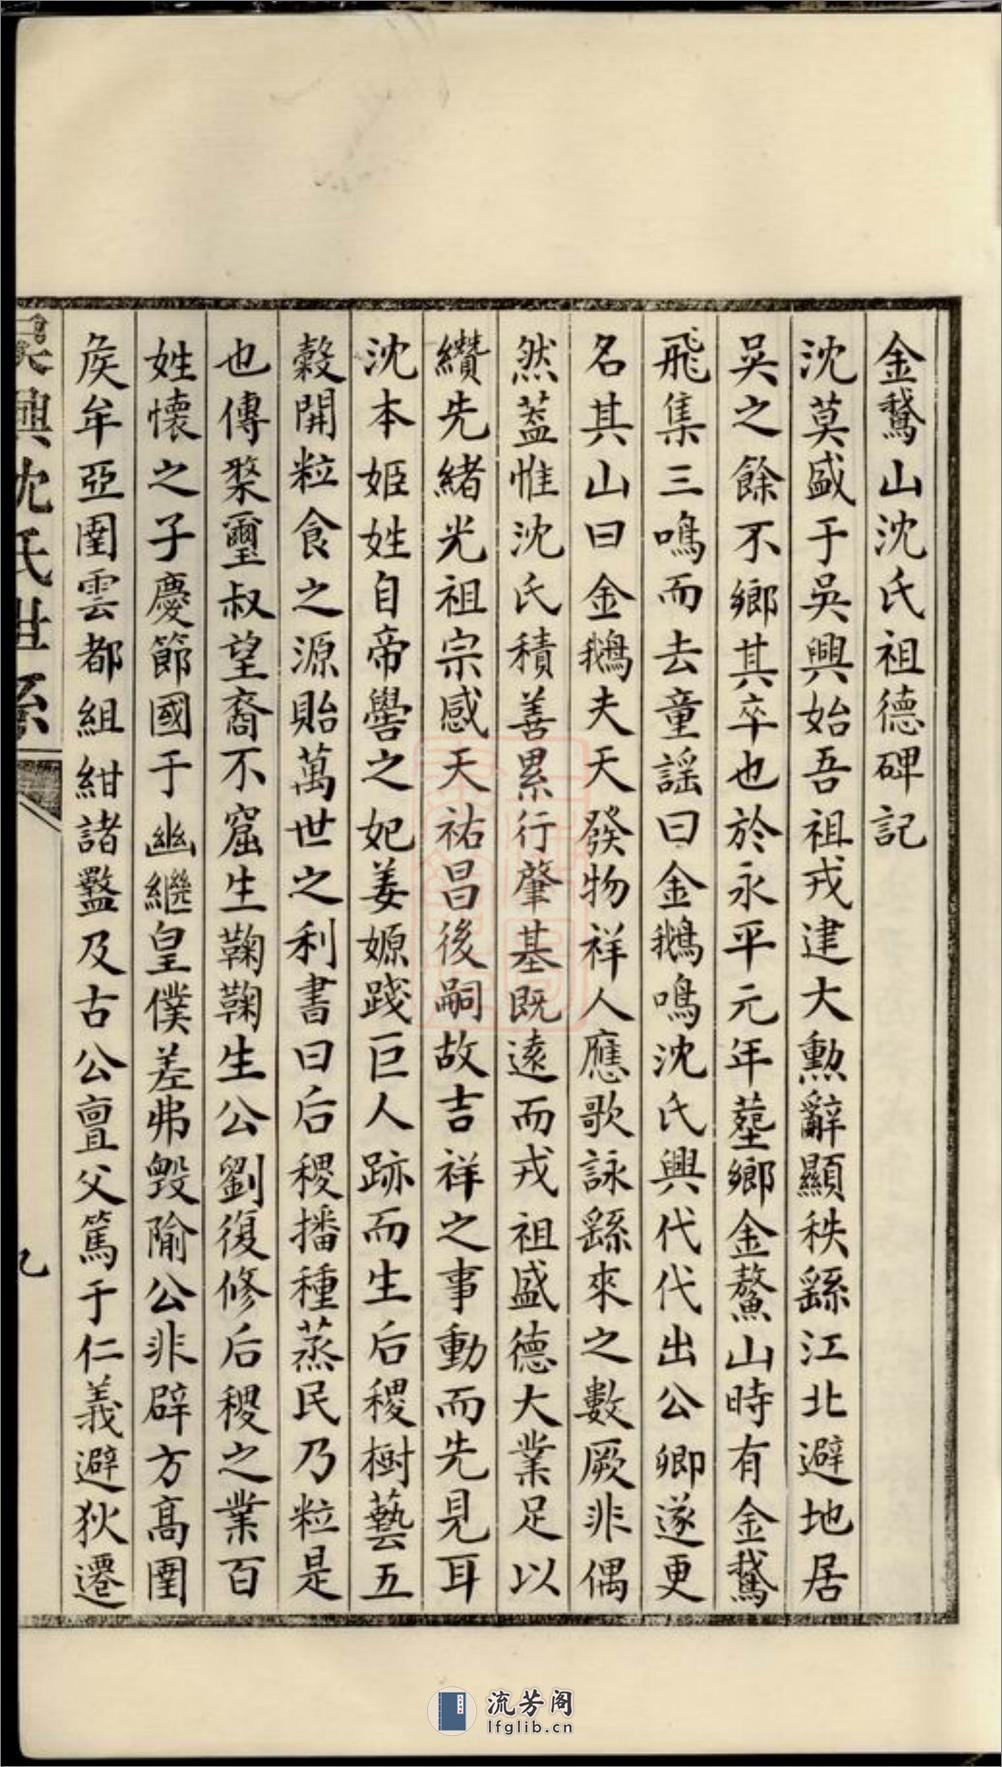 金鵞山沈氏祖德碑記
沈莫盛于吳興始吾祖戎建大勲辭顯秩繇江北避地居
吳之餘不鄉其卒也於永平元年塟鄉金鰲山時有金鵞
飛集三鳴而去童謡曰金鵝鳴沈氏興代代出公卿遂更
名其山曰金鵝夫天發物祥人應歌詠繇來之數厥非偶
然葢惟沈氏積善累行肇基既遠而戎祖盛德大業足以
纘先緒光祖宗感天祐昌後嗣故吉祥之事動而先見耳
沈本姬姓自帝嚳之妃姜嫄踐巨人跡而生后稷樹藝五
穀開粒食之源貽萬世之利書曰后稷播種蒸民乃粒是
也傳棃璽叔望裔不窟生鞠鞠生公劉復修后稷之業百
姓懷之子慶節國于豳繼皇僕差弗毁隃公非辟方高圉
矦牟亞圉雲都組紺諸盩及古公亶父篤于仁義避狄遷
吳興沈氏世系
九
流芳阁
lfglib.cn